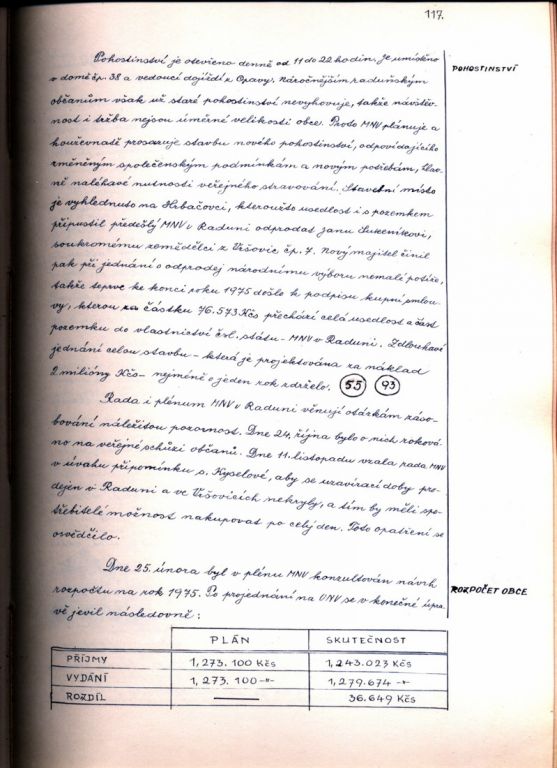 117.
Pohostinství je otevřeno denně od 11 do 22 hodin, je umístěno
POHOSTINSTVÍ
v domě čp. 38 a vedoucí dojíždí z Opavy. Náročnějším raduňským
občanům však už staré pohostinství nevyhovuje, takže návštěv-
nost i tržba nejsou úměrné velikosti obce. Proto MNV plánuje a
houževnatě prosazuje stavbu nového pohostinství, odpovídajícího
změněným společenským podmínkám a novým potřebám, hlav-
ně naléhavé nutnosti veřejného stravování. Stavební místo
je vyhlednuto na Hrbačovci, kteroužto usedlost i s pozemkem
připustil předešlý MNV v Raduni odprodat Janu Sukeníkovi,
soukromému zemědělci z Vršovic čp. 7. Nový majitel činil
pak při jednání o odprodej národnímu výboru nemalé potíže,
takže teprve ke konci roku 1975 došlo k podpisu kupní smlou-
vy, kterou za částku 76.573 Kčs přechází celá usedlost a část
pozemku do vlastnictví čsl. státu - MNV v Raduni. Zdlouhavé
jednání celou stavbu - která je projektována za náklad
2 milióny Kčs - nejméně o jeden rok zdrželo. 55 93
Rada i plénum MNV v Raduni věnují otázkám záso-
bování náležitou pozornost. Dne 24. října bylo o nich roková-
no na veřejné schůzi občanů. Dne 11. listopadu vzala rada MNV
v úvahu připomínku s. Kyselové, aby se uzavírací doby pro-
dejen v Raduni a ve Vršovicích nekryly, a tím by měli spo-
třebitelé možnost nakupovat po celý den. Toto opatření se
osvědčilo.
Dne 25. února byl v plénu MNV konzultován návrh
rozpočtu na rok 1975. Po projednání na ONV se v konečné úpra-
ROZPOČET OBCE
vě jevil následovně:
PLÁN SKUTEČNOST
PŘÍJMY 1,273.100 Kčs 1,243.023 Kčs
VYDÁNÍ 1,273.100 -"- 1,279.674 -"-
ROZDÍL —— 36.649 Kčs